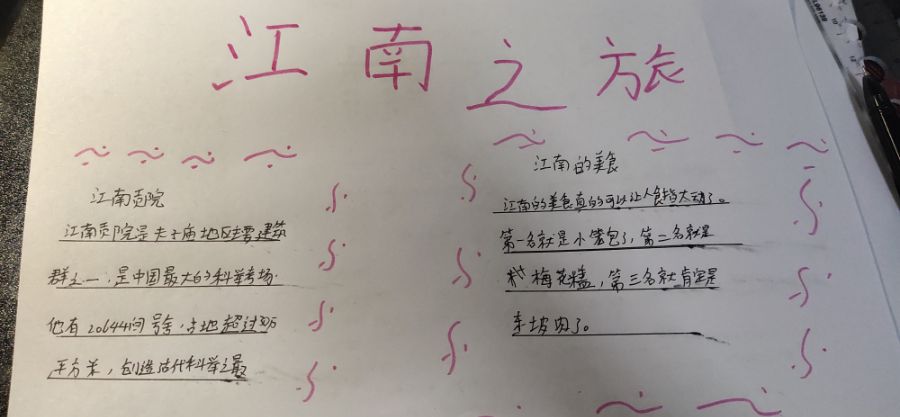 江南之旅
江南贡院
江南贡院是夫子庙地区主要建筑
群之一，是中国最大的科举考场.
他有20644间号舍，占地超过30万
平方米，创造古代科举之最
江南的美食
江南的美食真的可以让人食指大动了。
第一名就是小笼包了，第二名就是
梅花糕，第三名就肯定是
东坡肉了。